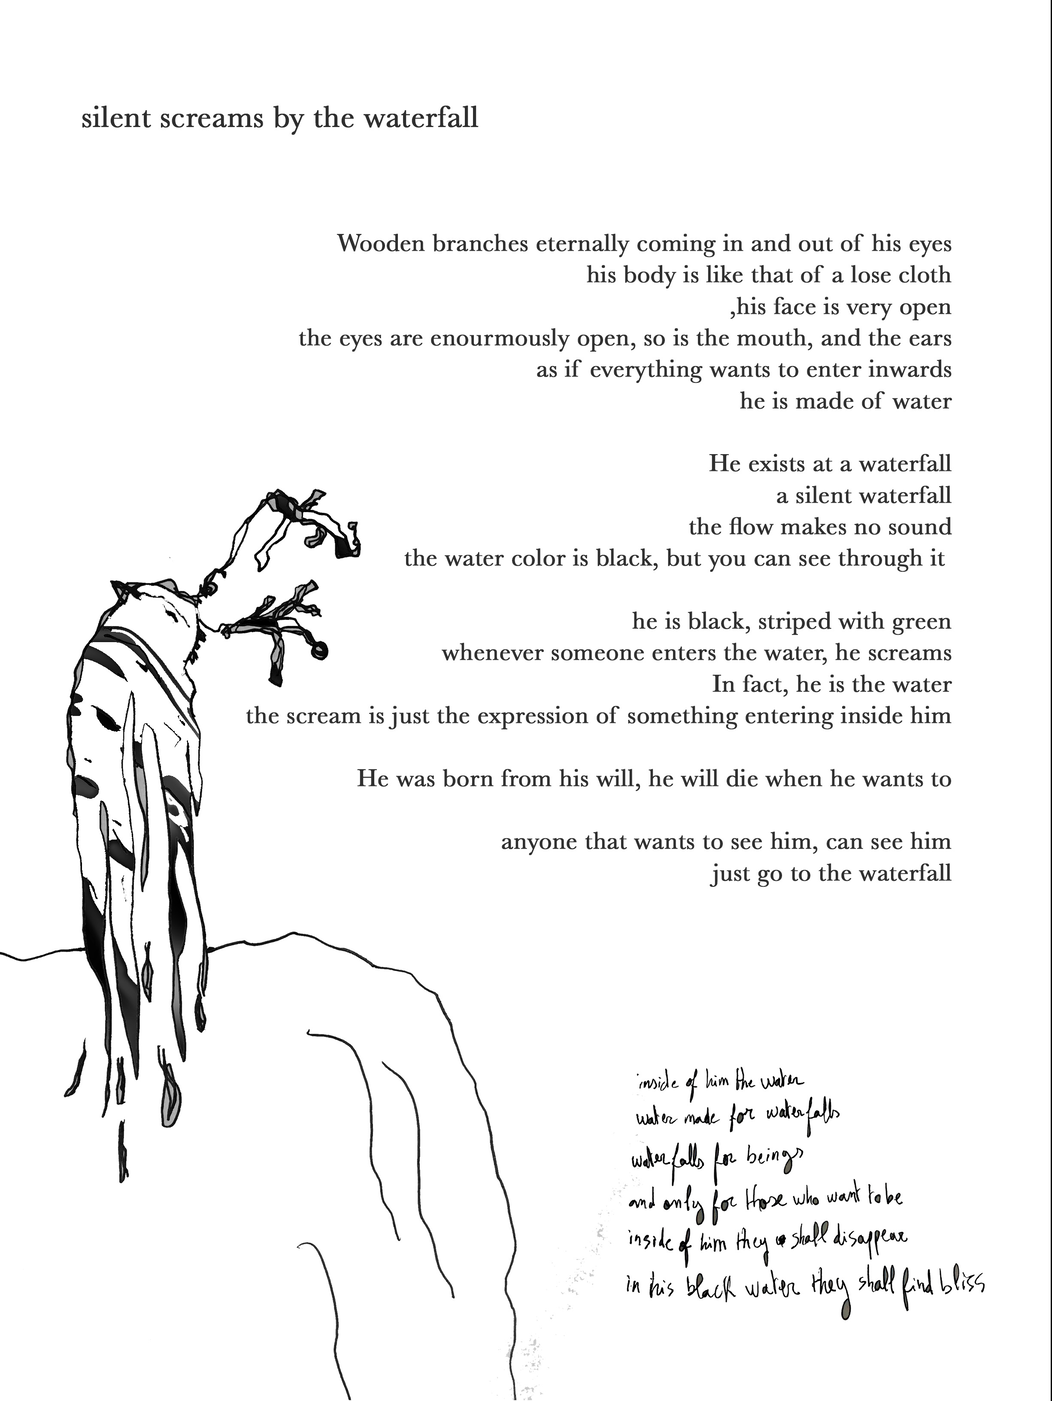 silent screams by the waterfall
Wooden branches eternally coming in and out of his eyes
his body is like that of a lose cloth
,his face is very open
the eyes are enourmously open, so is the mouth, and the ears
as if everything wants to enter inwards
he is made of water
He exists at a waterfall
a silent waterfall
the flow makes no sound
the water color is black, but you can see through it
he is black, striped with green
whenever someone enters the water, he screams
In fact, he is the water
the scream is just the expression of something entering inside him
He was born from his will, he will die when he wants to
anyone that wants to see him, can see him
just go to the waterfall
inside of him the water
water made for waterfalls
waterfalls for beings
and only for those who want to be
inside of him they shall disappear
in his black water they shall find bliss